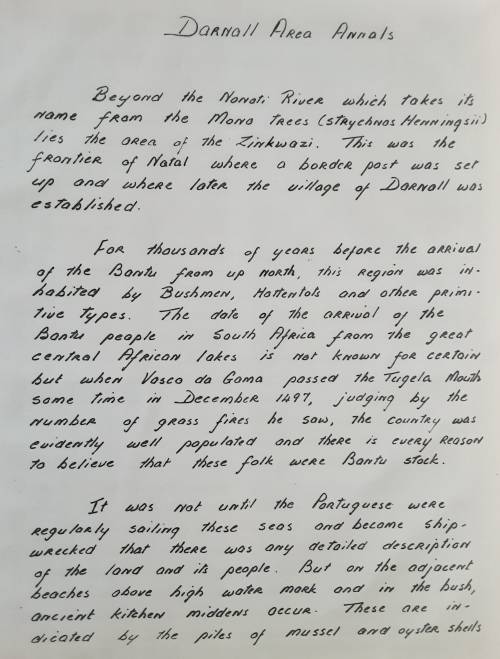 Darnall Area Annals
Beyond the Nonoti River which takes its
name from the Mona trees (strychnas Henningsii)
lies the area of the Zinkwazi. This was the
frontier of Natal where a border post was set
up and where later the village of Darnall was
established.
For thousands of years before the arrival
of the Bantu from up north, this region was in-
habited by Bushmen, Hottentots and other primi-
tive types. The date of the arrival of the
Bantu people in South Africa from the great
central African lakes is not known for certain
but when Vasco da Gama passed the Tugela Mouth
some time in December 1497, judging by the
number of grass fires he saw, the country was
evidently well populated and there is every reason
to believe that these folk were Bantu stock.
It was not until the Portuguese were
regularly sailing these seas and became ship-
wrecked that there was any detailed description
of the land and its people. But on the adjacent
beaches above high water mark and in the bush,
ancient kitchen middens occur. These are in-
dicated by the piles of mussel and oyster shells